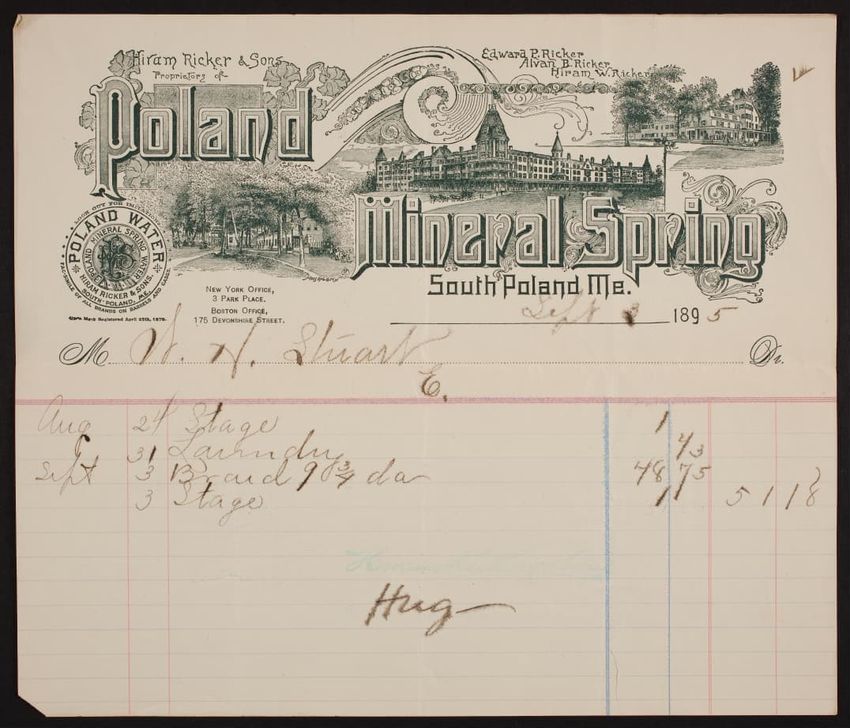 Hiram Ricker & Sons
Proprietors of
Edward P. Ricker
Alvan B. Ricker
Hiram W. Ricker
Poland
Mineral Spring
South Poland Me.
POLAND WATER
POLAND MINERAL SPRING WATER
HIRAM RICKER & SONS.
SOUTH POLAND, ME.
Trade Mark Registered April 25th, 1876.
NEW YORK OFFICE,
3 PARK PLACE.
BOSTON OFFICE,
175 DEVONSHIRE STREET.
Sept 3 1895
M W. H. Stuart Dr.
E.
Aug 24 Stage 1
31 Laundry 43
Sept 3 Board 9 3/4 da 48 75
3 Stage 1 51 18